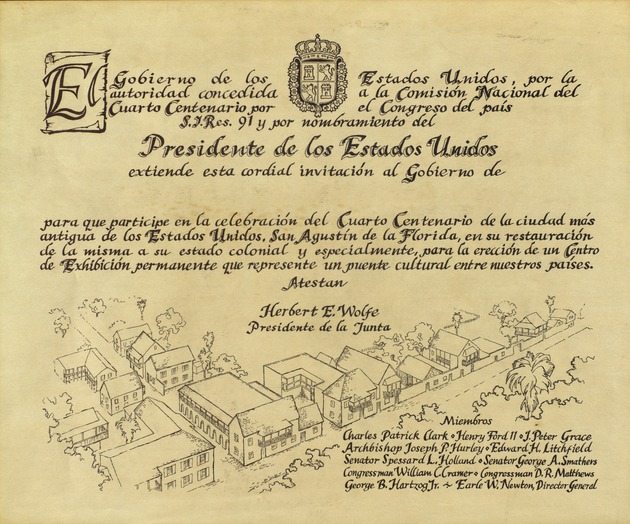 El Gobierno de los Estados Unidos, por la
autoridad concedida a la Comisión Nacional del
Cuarto Centenario por el Congreso del país
S.J.Res. 91 y por nombramiento del
Presidente de los Estados Unidos
extiende esta cordial invitación al Gobierno de
para que participe en la celebración del Cuarto Centenario de la ciudad más
antigua de los Estados Unidos, San Agustín de la Florida, en su restauración
de la misma a su estado colonial y especialmente, para la erección de un Centro
de Exhibición permanente que represente un puente cultural entre nuestros países.
Atestan
Herbert E. Wolfe
Presidente de la Junta
Miembros
Charles Patrick Clark • Henry Ford II • J. Peter Grace
Archbishop Joseph P. Hurley • Edward H. Litchfield
Senator Spessard L. Holland • Senator George A. Smathers
Congressman William C. Cramer • Congressman D. R. Matthews
George B. Hartzog Jr. ~ Earle W. Newton, Director General